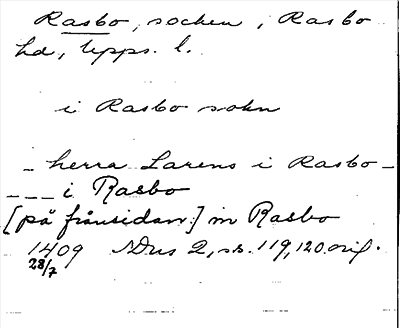 Rasbo, socken, Rasbo
hd, Upps. l.
i Rasbo sokn
_ herra Larens i Rasbo _
_ _ _ i Rasbo
[på frånsidan:] in Rasbo
1409 NDus 2, sr. 119, 120. orig.
28/7